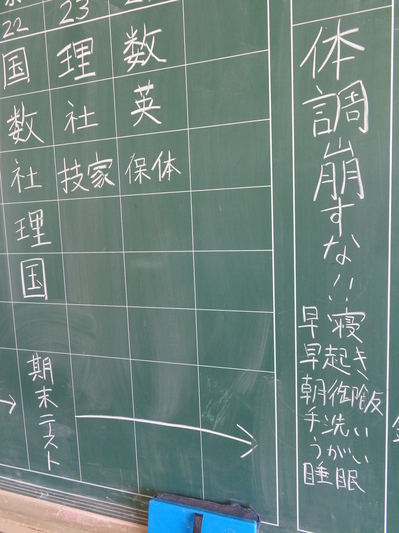 22
国
数
社
理
国
期末テスト
23
理
社
技家
数
英
保体
体調崩すな!!
早寝
早起き
朝御飯
手洗い
うがい
睡眠